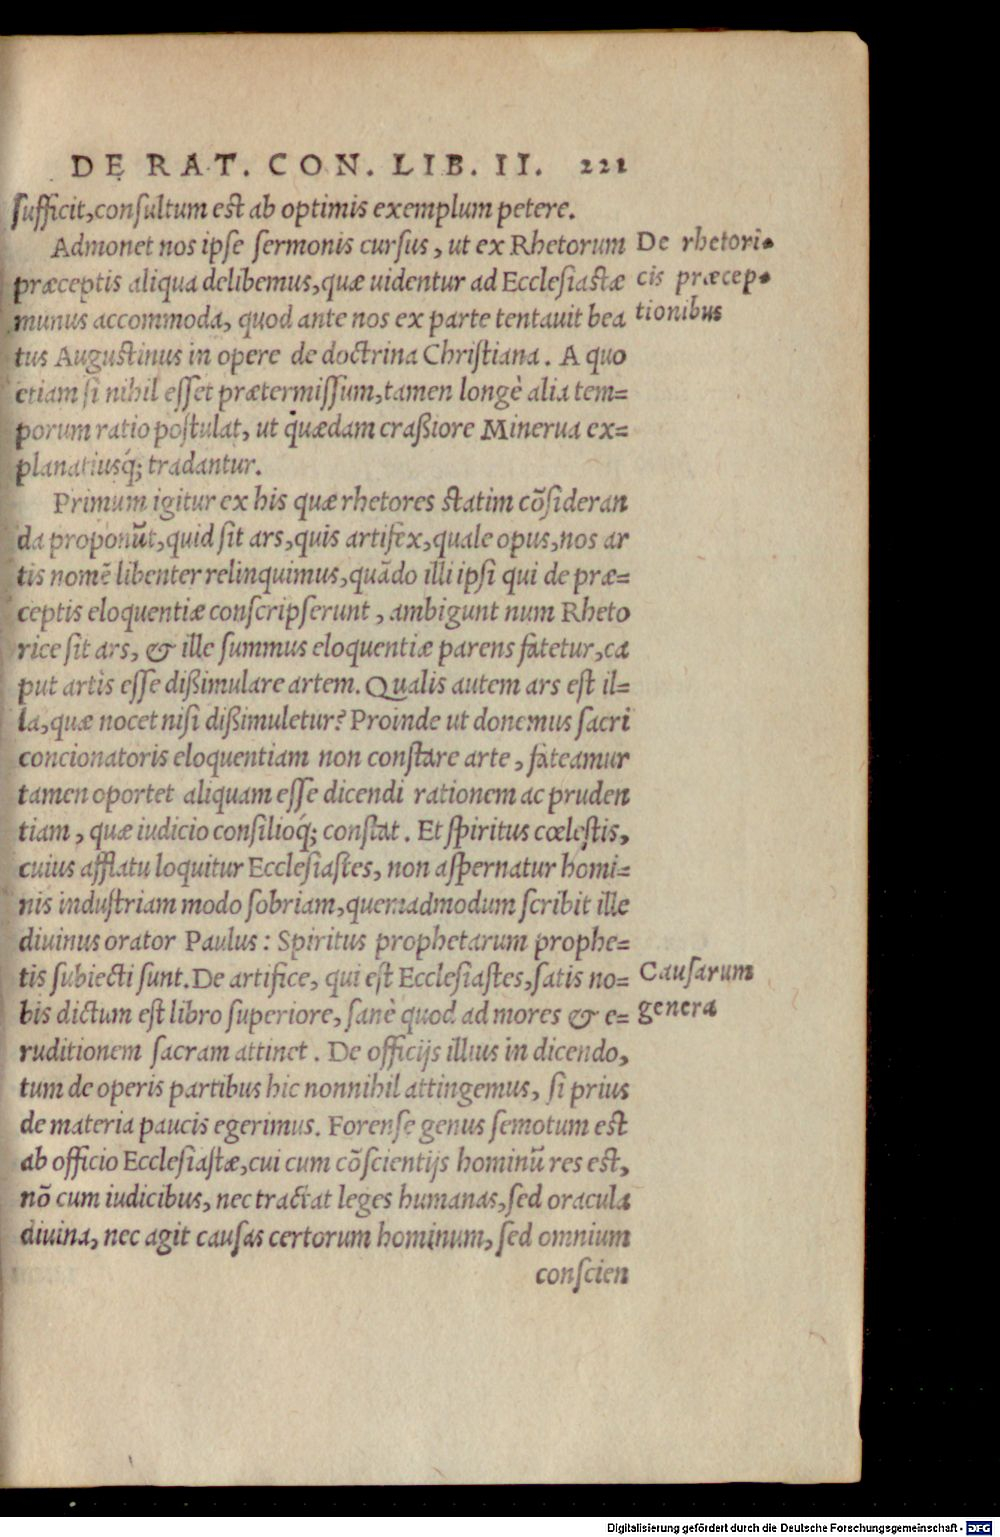 DE RAT. CON. LIB. II. 221
sufficit,consultum est ab optimis exemplum petere.
Admonet nos ipse sermonis cursus, ut ex Rhetorum
præceptis aliqua delibemus,quæ uidentur ad Ecclesiastæ
munus accommoda, quod ante nos ex parte tentauit bea
tus Augustinus in opere de doctrina Christiana. A quo
etiam si nihil esset prætermissum,tamen longè alia tem=
porum ratio postulat, ut quædam craßiore Minerua ex=
planatiusq́; tradantur.
Primum igitur ex his quæ rhetores statim cõsideran
da proponũt,quid sit ars,quis artifex,quale opus,nos ar
tis nomẽ libenter relinquimus,quãdo illi ipsi qui de præ=
ceptis eloquentiæ conscripserunt, ambigunt num Rheto
rice sit ars, & ille summus eloquentiæ parens fatetur,ca
put artis esse dißimulare artem. Qualis autem ars est il=
la,quæ nocet nisi dißimuletur? Proinde ut donemus sacri
concionatoris eloquentiam non constare arte, fateamur
tamen oportet aliquam esse dicendi rationem ac pruden
tiam, quæ iudicio consilioq́; constat. Et spiritus cœlestis,
cuius afflatu loquitur Ecclesiastes, non aspernatur homi=
nis industriam modo sobriam,quemadmodum scribit ille
diuinus orator Paulus: Spiritus prophetarum prophe=
tis subiecti sunt.De artifice, qui est Ecclesiastes,satis no=
bis dictum est libro superiore, sanè quod ad mores & e=
ruditionem sacram attinet. De officijs illius in dicendo,
tum de operis partibus hic nonnihil attingemus, si prius
de materia paucis egerimus. Forense genus semotum est
ab officio Ecclesiastæ,cui cum cõscientijs hominũ res est,
nõ cum iudicibus, nec tractat leges humanas,sed oracula
diuina, nec agit causas certorum hominum, sed omnium
conscien
De rhetori=
cis præcep=
tionibus
Causarum
genera
Digitalisierung gefördert durch die Deutsche Forschungsgemeinschaft - DFG